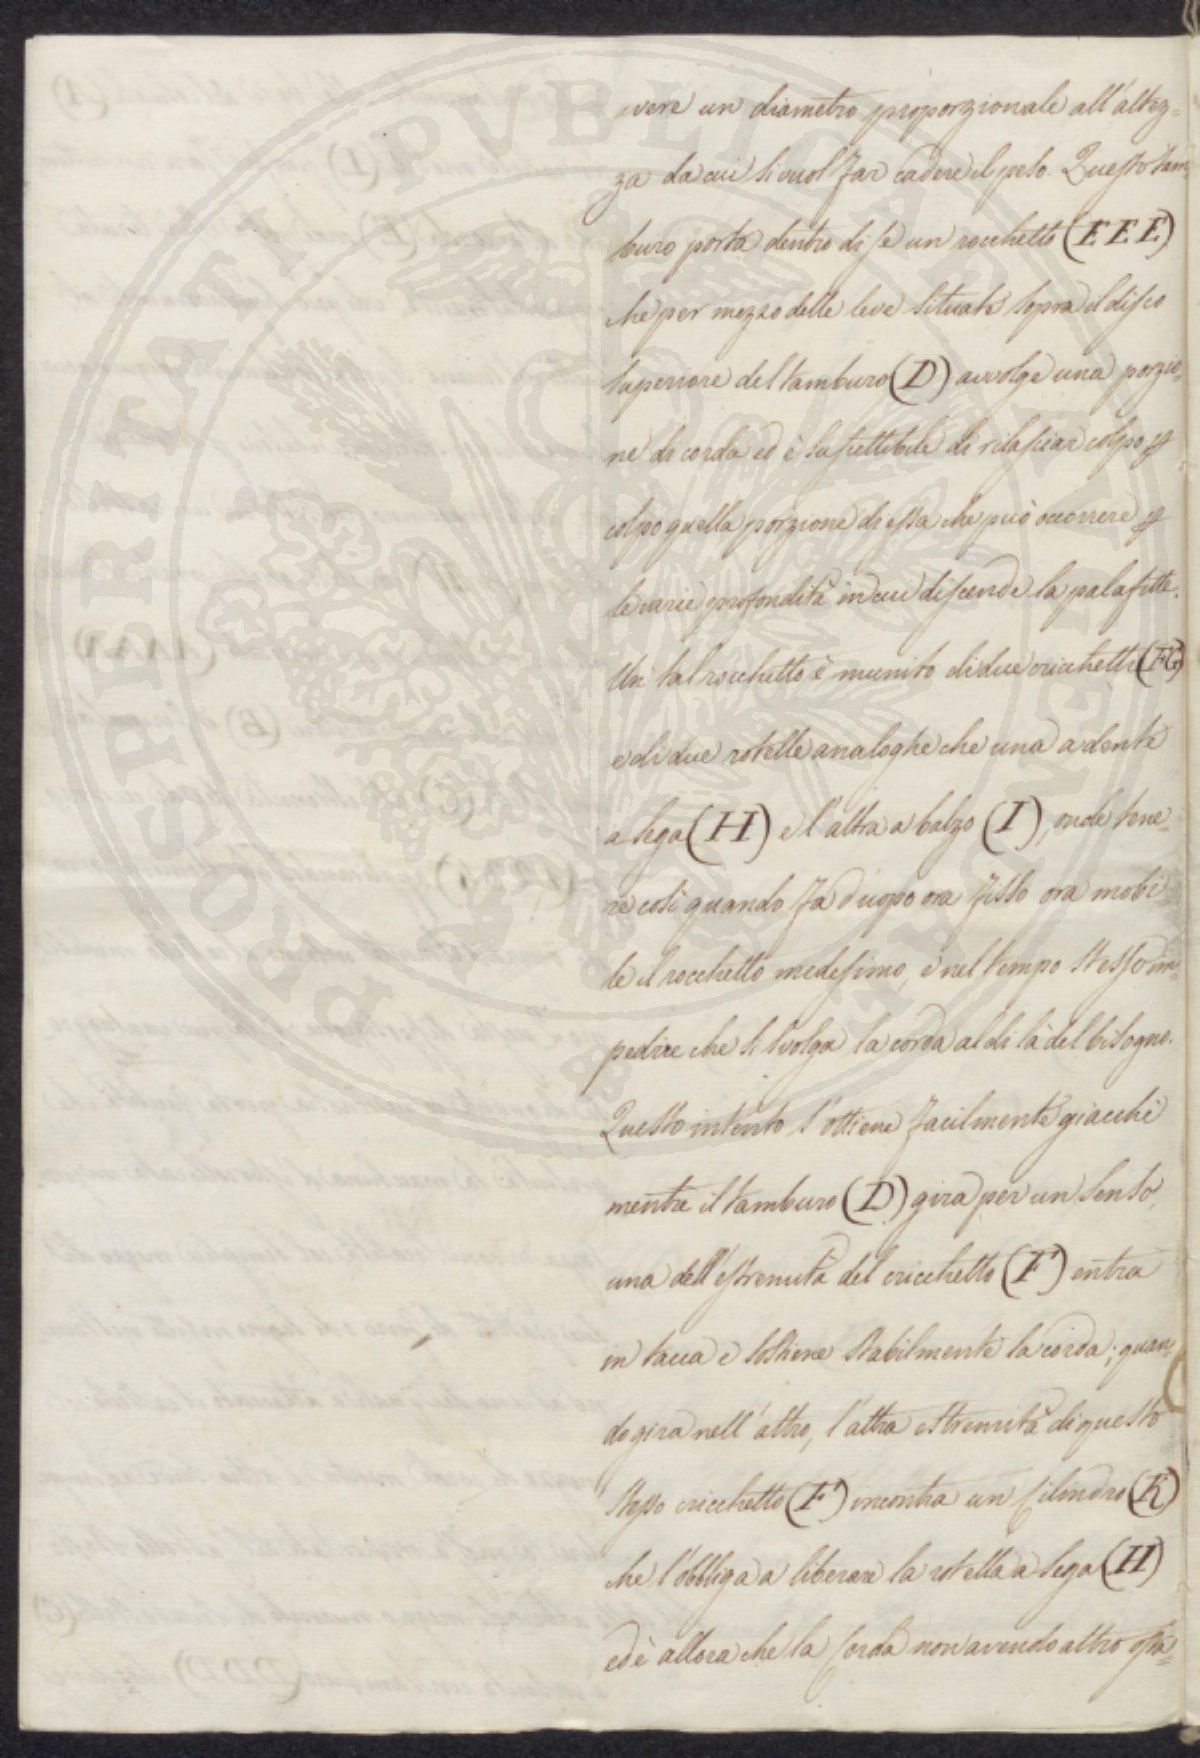 avere un diametro proporzionale all'altez=
za da cui si vuol far cadere il peso. Questo tam
buro porta dentro di se un rocchetto (EEE)
che per mezzo delle leve situate sopra il disco
superiore del tamburo (D) avvolge una porzio=
ne di corda ed è suscettibile di rilasciar colpo p
colpo quella porzione di essa che può occorrere p
le varie profondità in cui discende la palafitta.
Un tal rocchetto è munito di due cricchetti (FG)
e di due rotelle analoghe che una a dente
a sega (H) e l'altra a balzo (I), onde tene=
re così quando fa d'uopo ora fisso ora mobi=
le il rocchetto medesimo, e nel tempo stesso im=
pedire che si svolga la corda al di là del bisogno.
Questo intento s'ottiene facilmente giacchè
mentre il tamburo (D) gira per un senso,
una dell'estremità del cricchetto (F) entra
in tacca e sostiene stabilmente la corda; quan=
do gira nell'altro, l'altra estremità di questo
stesso cricchetto (F) incontra un cilindro (K)
che l'obbliga a liberare la rotella a sega (H)
ed è allora che la corda non avendo altro osta=
PROSPERITATI PVBLICAE AVGENDAE